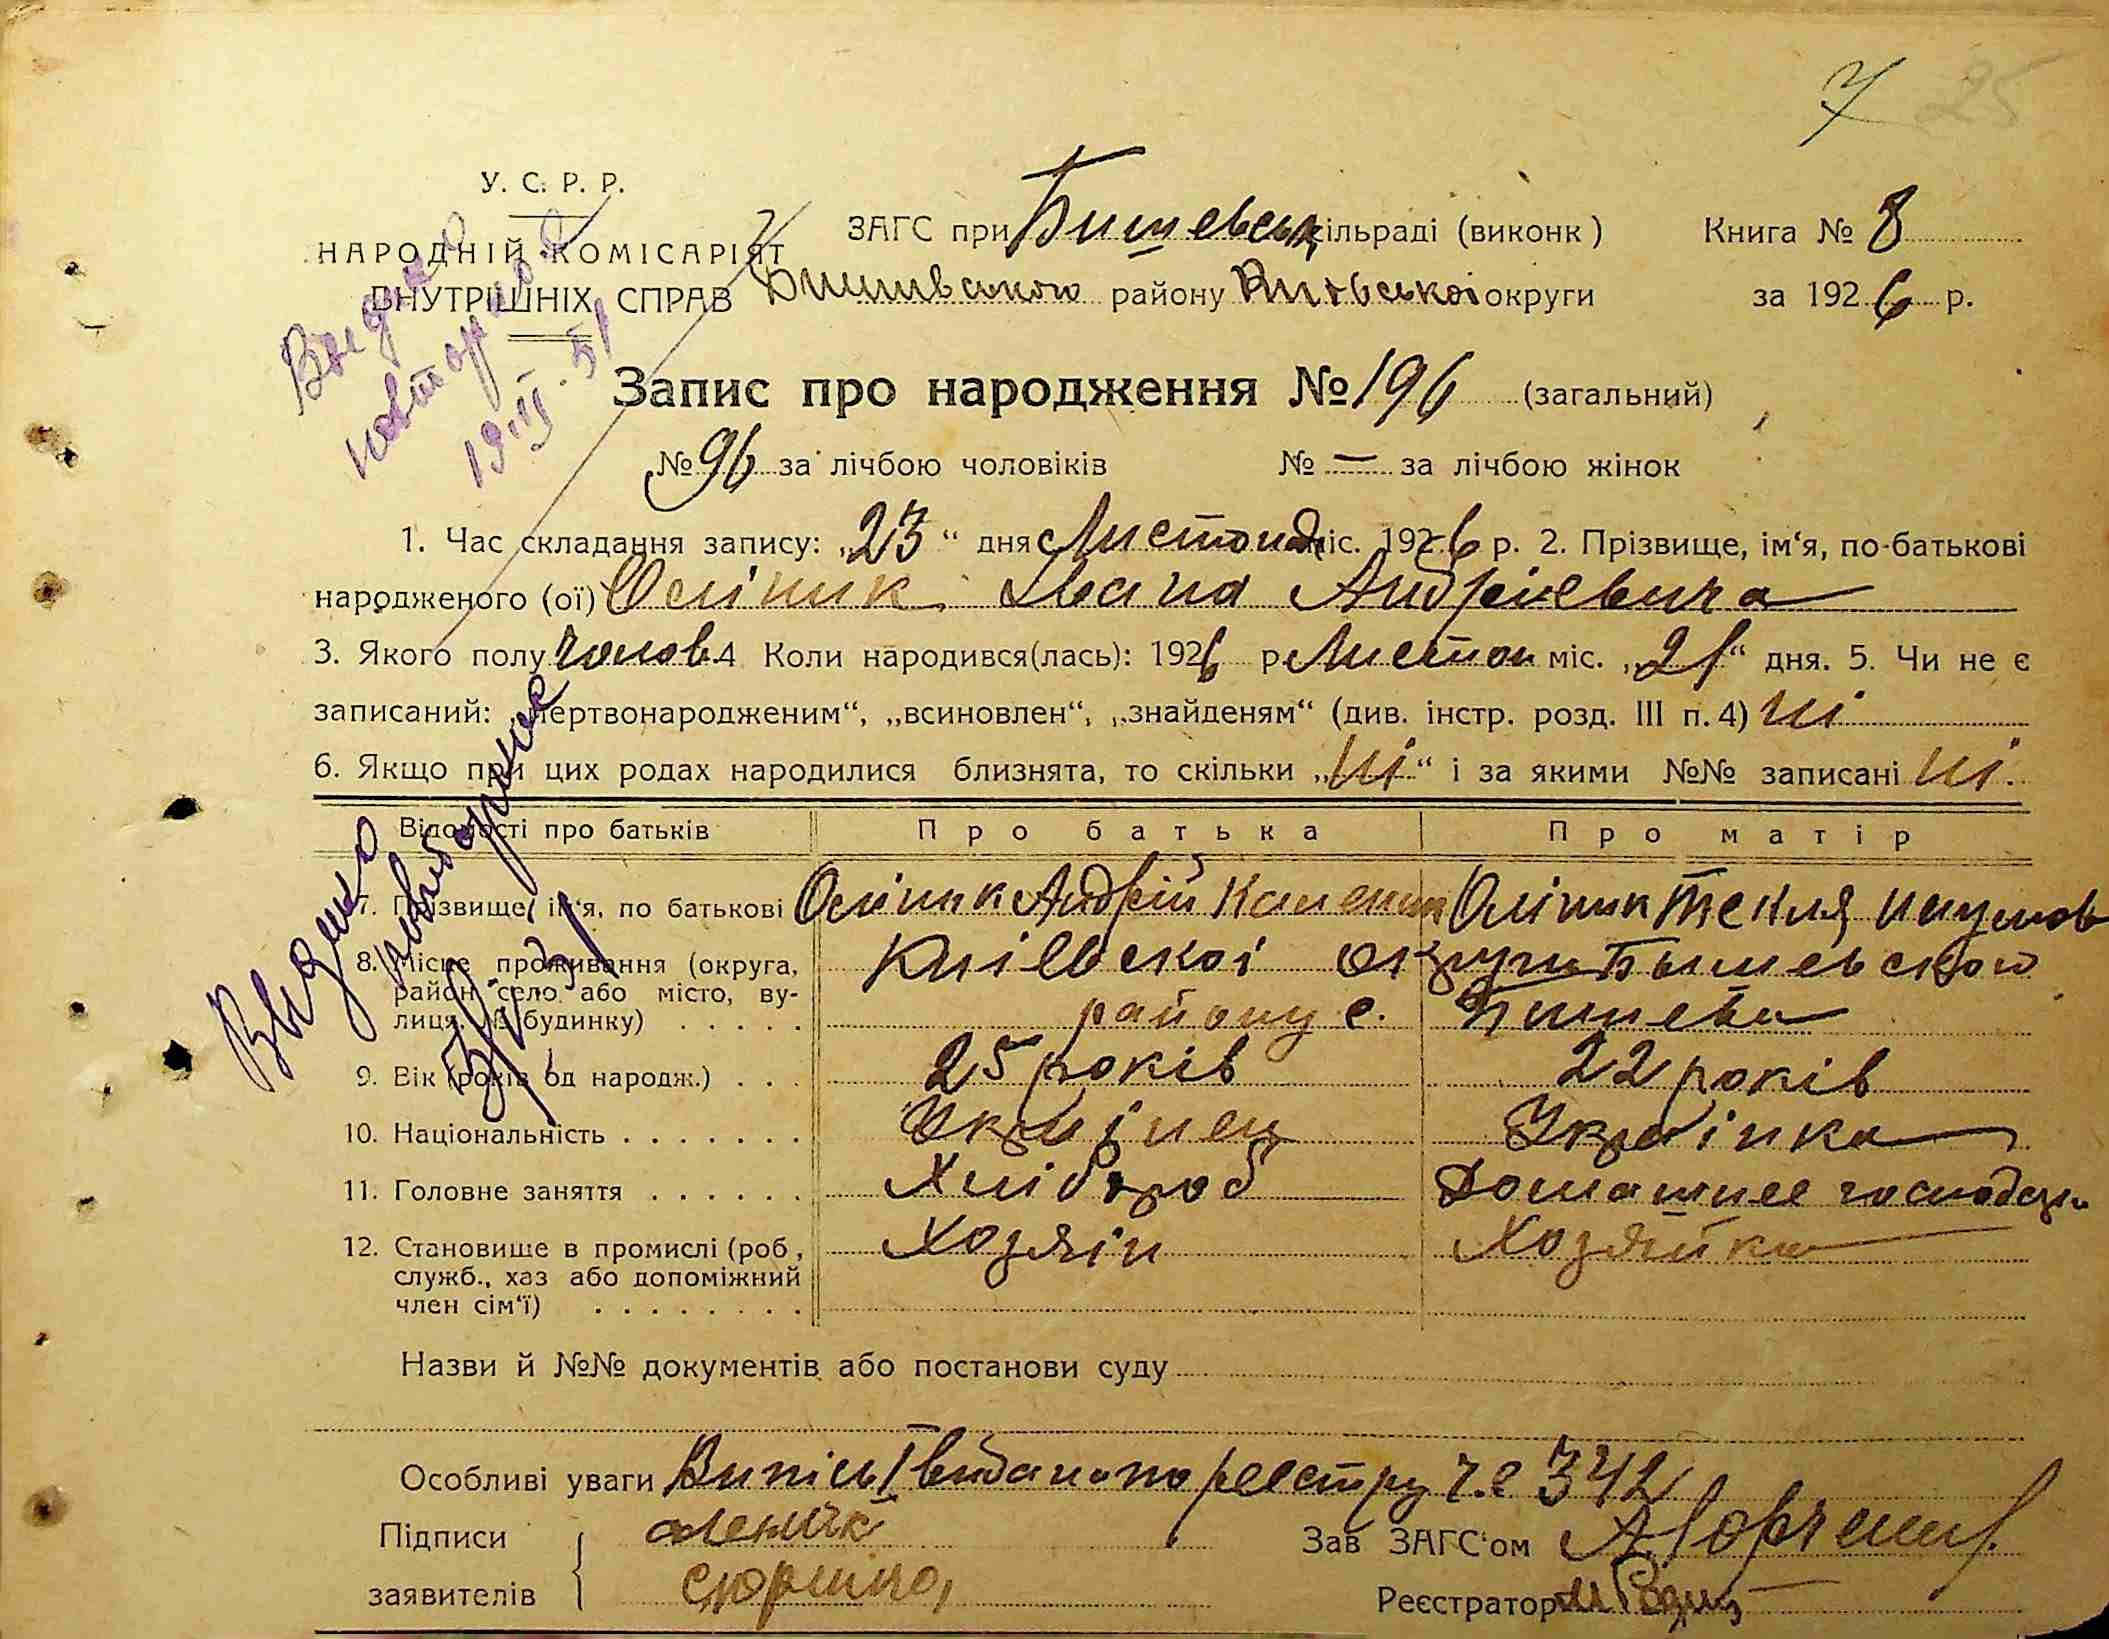 7 25
У. С. Р. Р.
НАРОДНІЙ КОМІСАРІЯТ
ВНУТРІШНІХ СПРАВ
ЗАГС при Бишевськ сільраді (виконк) Книга № 8
Бишивського району Київської округи за 1926 р.
Видано
повторно
19.III.51
Запис про народження № 196 (загальний)
№ 96 за лічбою чоловіків № — за лічбою жінок
1. Час складання запису: „23“ дня Листопад міс. 1926 р. 2. Прізвище, ім‘я, по-батькові
народженого (ої) Олійник Івана Андріевича
3. Якого полу чолов. 4 Коли народився(лась): 1926 р Листоп міс. „21“ дня. 5. Чи не є
записаний: „мертвонародженим“, „всиновлен“, „знайденям“ (див. інстр. розд. III п. 4) ні
6. Якщо при цих родах народилися близнята, то скільки „ні“ і за якими №№ записані ні.
Відомості про батьків Про батька Про матір
Видано
повторно
7. Прізвище, ім‘я, по батькові Олійник Андрій Олійник Текля Наумов
8. Місце проживання (округа, Київської округи Бышевського
район село або місто, ву- району с. Бишева
лиця, № будинку)
9. Вік (років од народж.) 25 років 22 років
10. Національність Українец Українка
11. Головне заняття Хлібороб Домашнее господар
12. Становище в промислі (роб, Хозяін Хозяйка
служб., хаз або допоміжний
член сім‘ї)
Назви й №№ документів або постанови суду
Особливі уваги Випісь видано по реестру 342
Підписи Зав ЗАГС‘ом
заявителів Реєстратор